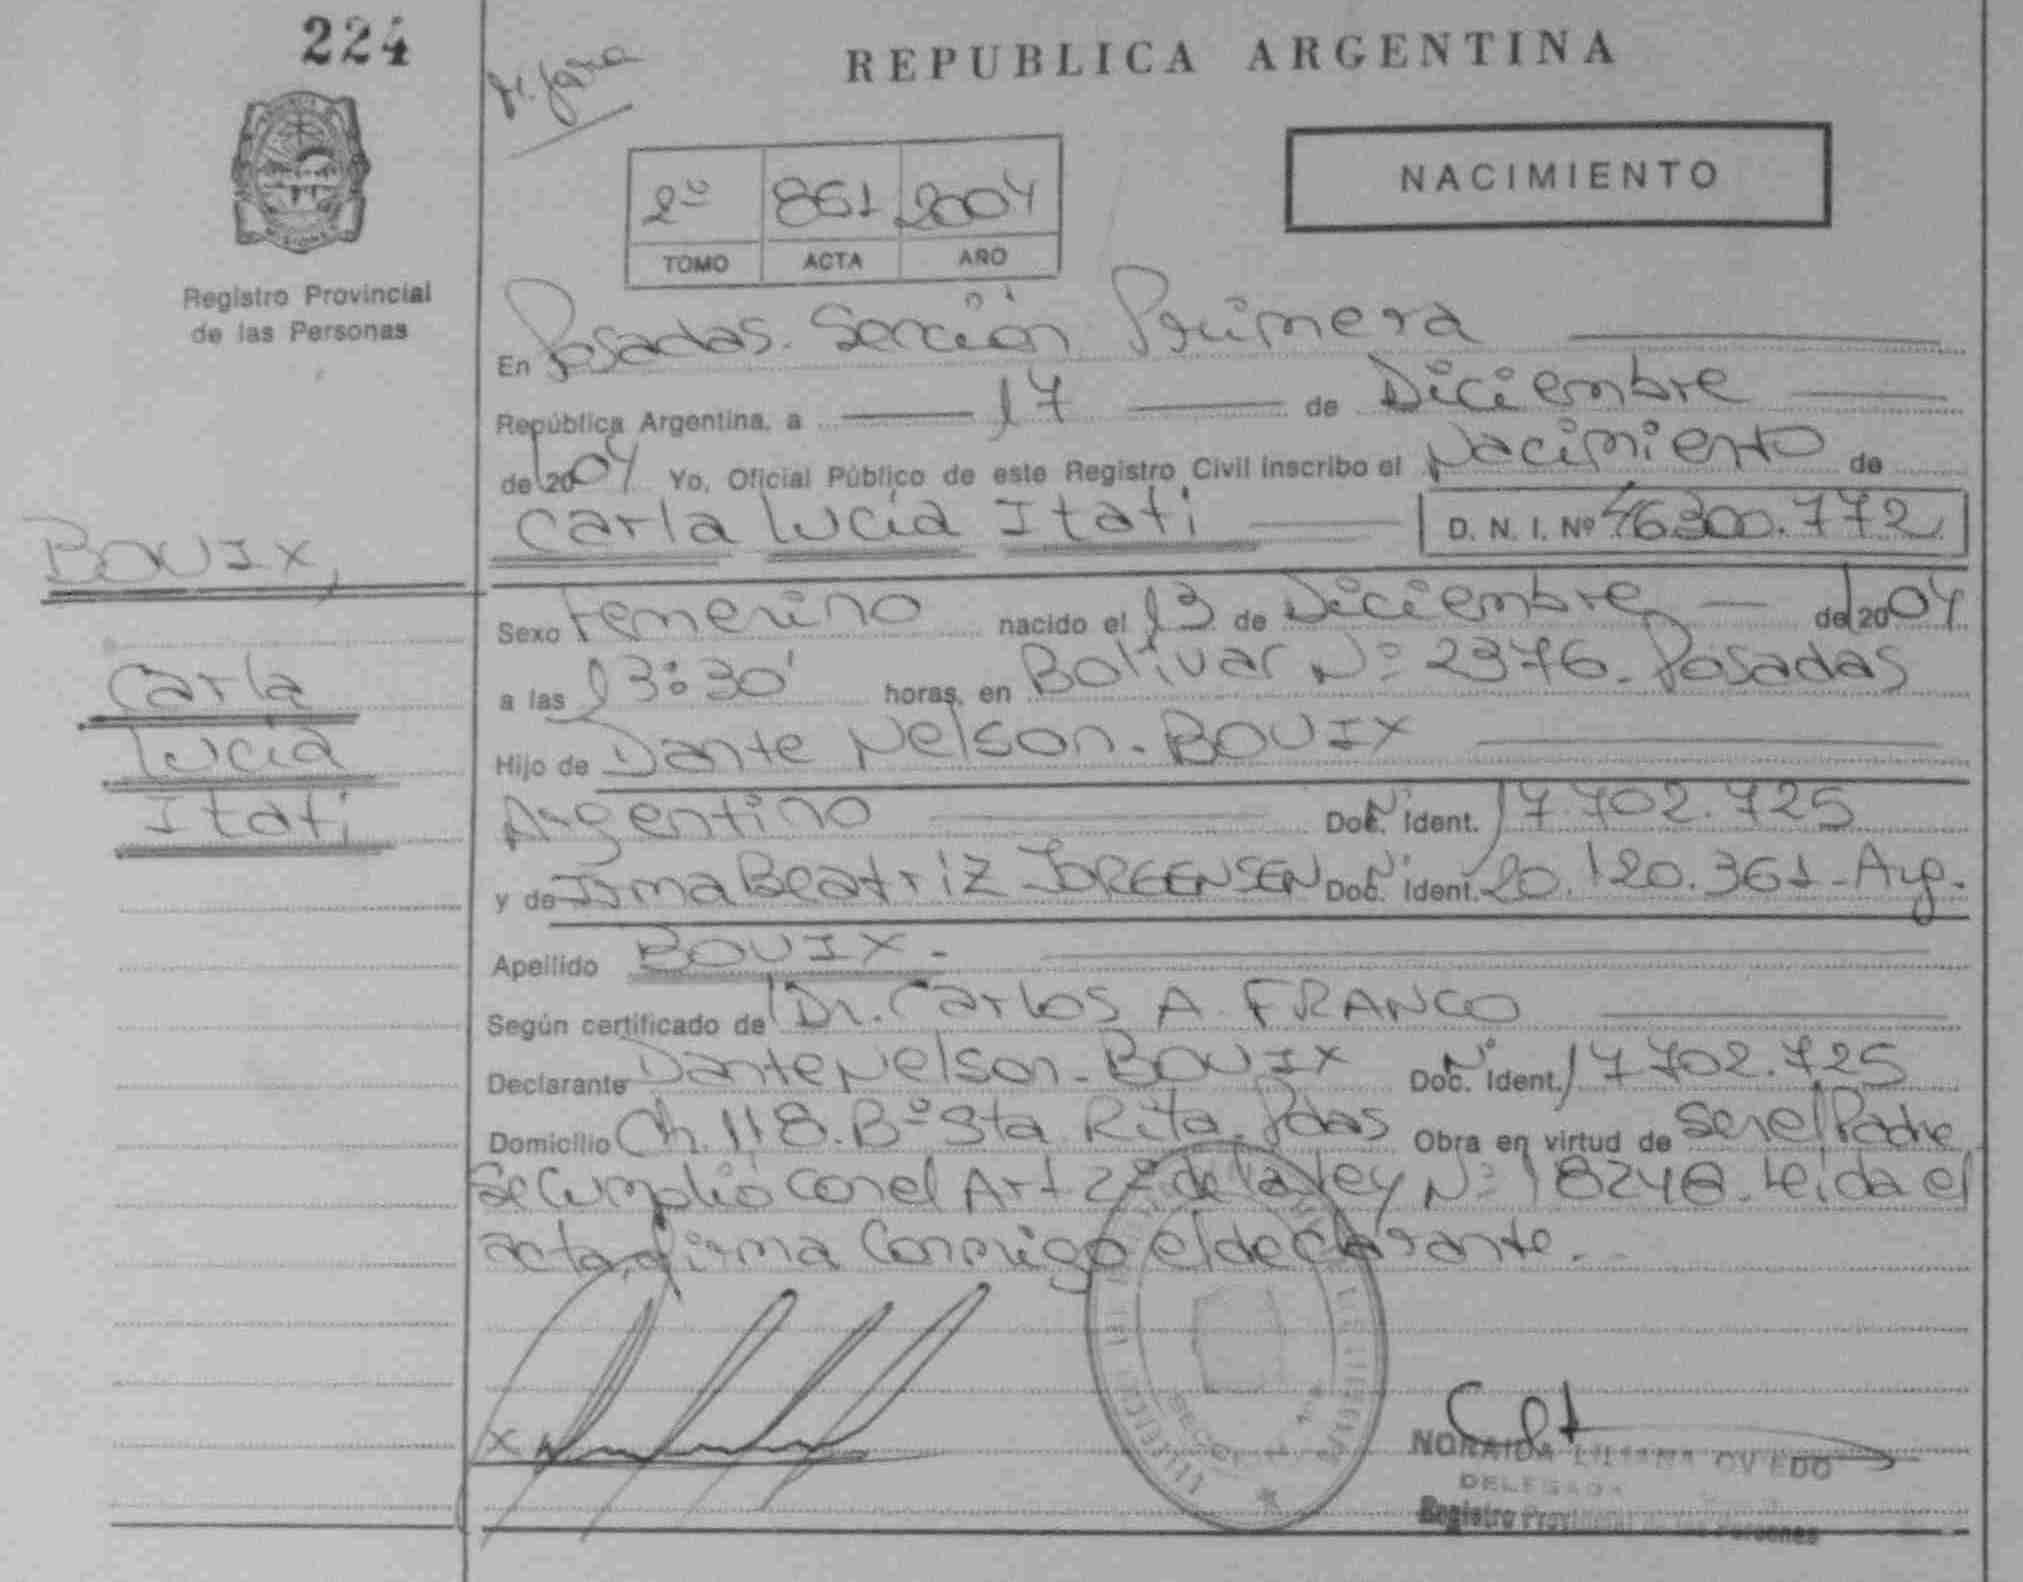 224
REPUBLICA ARGENTINA
NACIMIENTO
2º 861 2004
TOMO ACTA AÑO
Registro Provincial
de las Personas
En Posadas. Sección Primera
República Argentina, a 17 de Diciembre
de 2004 Yo, Oficial Público de este Registro Civil inscribo el Nacimiento de
Carla Lucía Itati D. N. I. Nº 46.300.772
BOUIX,
Carla
Lucía
Itati
Sexo Femenino nacido el 13 de Diciembre de 2004
a las 13:30' horas, en Bolívar Nº 2376. Posadas
Hijo de Dante Nelson. BOUIX
Argentino Doc. Ident. 17.702.725
y de Irma Beatriz JORGENSEN Doc. Ident. 20.120.361 - Arg.
Apellido BOUIX.
Según certificado de Dr. Carlos A. FRANCO
Declarante Dante Nelson. BOUIX Doc. Ident. 17.702.725
Domicilio Ch. 118. Bº Sta Rita. Pdas Obra en virtud de Ser el Padre
Se Cumplió con el Art 2º de la Ley Nº 18248. Leída el
acta, firma Conmigo el declarante.
NORAIDA LILIANA OVIEDO
DELEGADA
Registro Provincial de las Personas